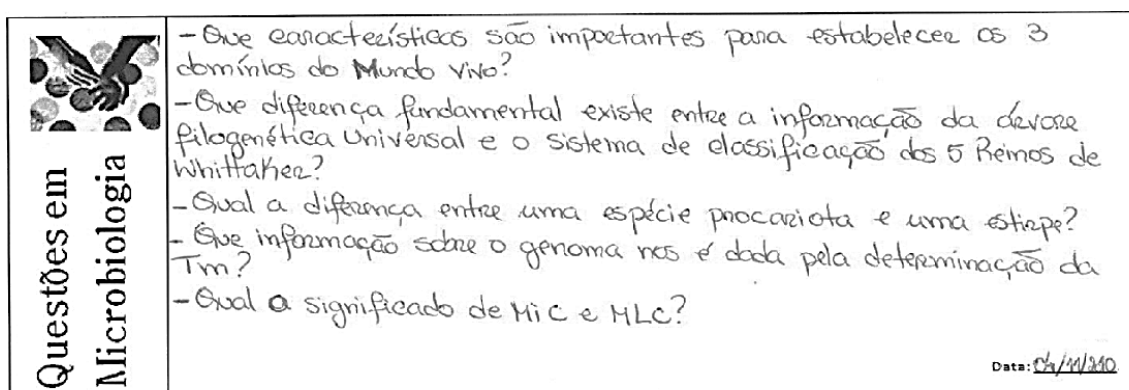 Questões em
Microbiologia
- Que características são importantes para estabelecer os 3
domínios do Mundo Vivo?
- Que diferença fundamental existe entre a informação da árvore
filogenética Universal e o sistema de classificação dos 5 Reinos de
Whittaker?
- Qual a diferença entre uma espécie procariota e uma estirpe?
- Que informação sobre o genoma nos é dada pela determinação da
Tm?
- Qual o significado de MIC e MLC?
Data: